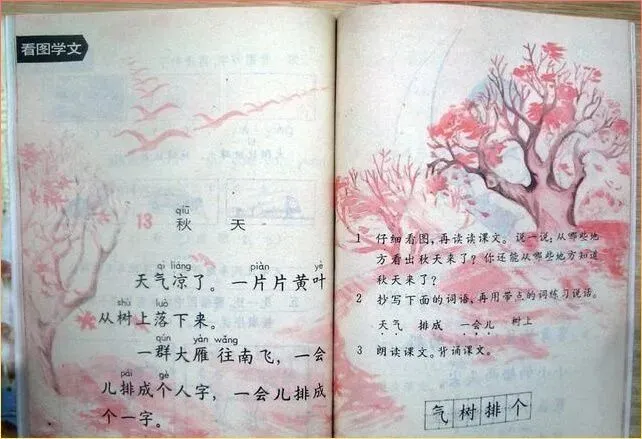 看图学文
qiū
13 秋 天
qì liáng piàn yè
天气凉了。一片片黄叶
shù luò
从树上落下来。
qún yàn wǎng
一群大雁往南飞，一会
pái gè
儿排成个人字，一会儿排成
个一字。
1 仔细看图，再读读课文。说一说：从哪些地
方看出秋天来了？你还能从哪些地方知道
秋天来了？
2 抄写下面的词语，再用带点的词练习说话。
天气 排成 一会儿 树上
3 朗读课文。背诵课文。
气树排个